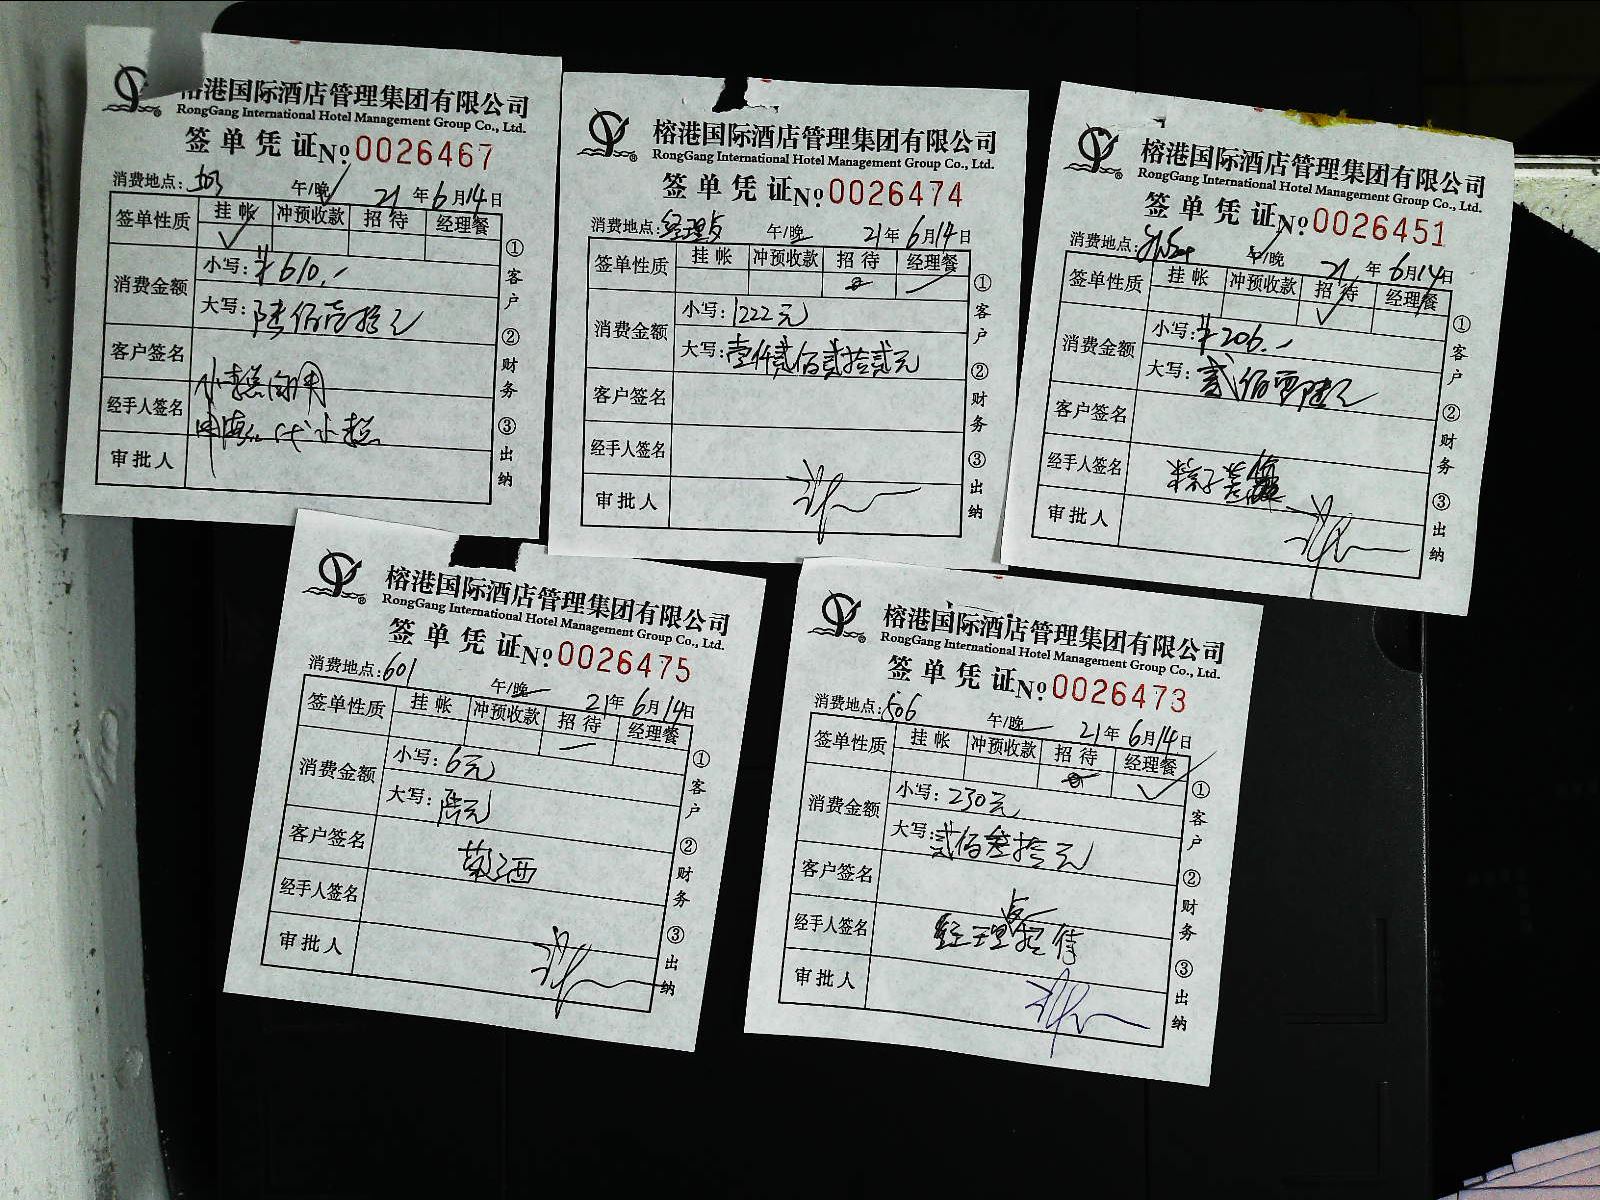 榕港国际酒店管理集团有限公司
RongGang International Hotel Management Group Co., Ltd.
签单凭证 № 0026467
消费地点: 午/晚 21年6月14日
签单性质 挂帐 冲预收款 招待 经理餐
消费金额 小写: ¥610.-
大写: 陆佰壹拾元
客户签名
经手人签名
审批人
①客户 ②财务 ③出纳
榕港国际酒店管理集团有限公司
RongGang International Hotel Management Group Co., Ltd.
签单凭证 № 0026474
消费地点: 午/晚 21年6月14日
签单性质 挂帐 冲预收款 招待 经理餐
消费金额 小写: 1222元
大写: 壹仟贰佰贰拾贰元
客户签名
经手人签名
审批人
①客户 ②财务 ③出纳
榕港国际酒店管理集团有限公司
RongGang International Hotel Management Group Co., Ltd.
签单凭证 № 0026451
消费地点: 午/晚 21年6月14日
签单性质 挂帐 冲预收款 招待 经理餐
消费金额 小写: ¥206.-
大写: 贰佰零陆元
客户签名
经手人签名
审批人
①客户 ②财务 ③出纳
榕港国际酒店管理集团有限公司
RongGang International Hotel Management Group Co., Ltd.
签单凭证 № 0026475
消费地点: 601 午/晚 21年6月14日
签单性质 挂帐 冲预收款 招待 经理餐
消费金额 小写: 6元
大写: 陆元
客户签名
经手人签名
审批人
①客户 ②财务 ③出纳
榕港国际酒店管理集团有限公司
RongGang International Hotel Management Group Co., Ltd.
签单凭证 № 0026473
消费地点: 506 午/晚 21年6月14日
签单性质 挂帐 冲预收款 招待 经理餐
消费金额 小写: 230元
大写: 贰佰叁拾元
客户签名
经手人签名 经理
审批人
①客户 ②财务 ③出纳